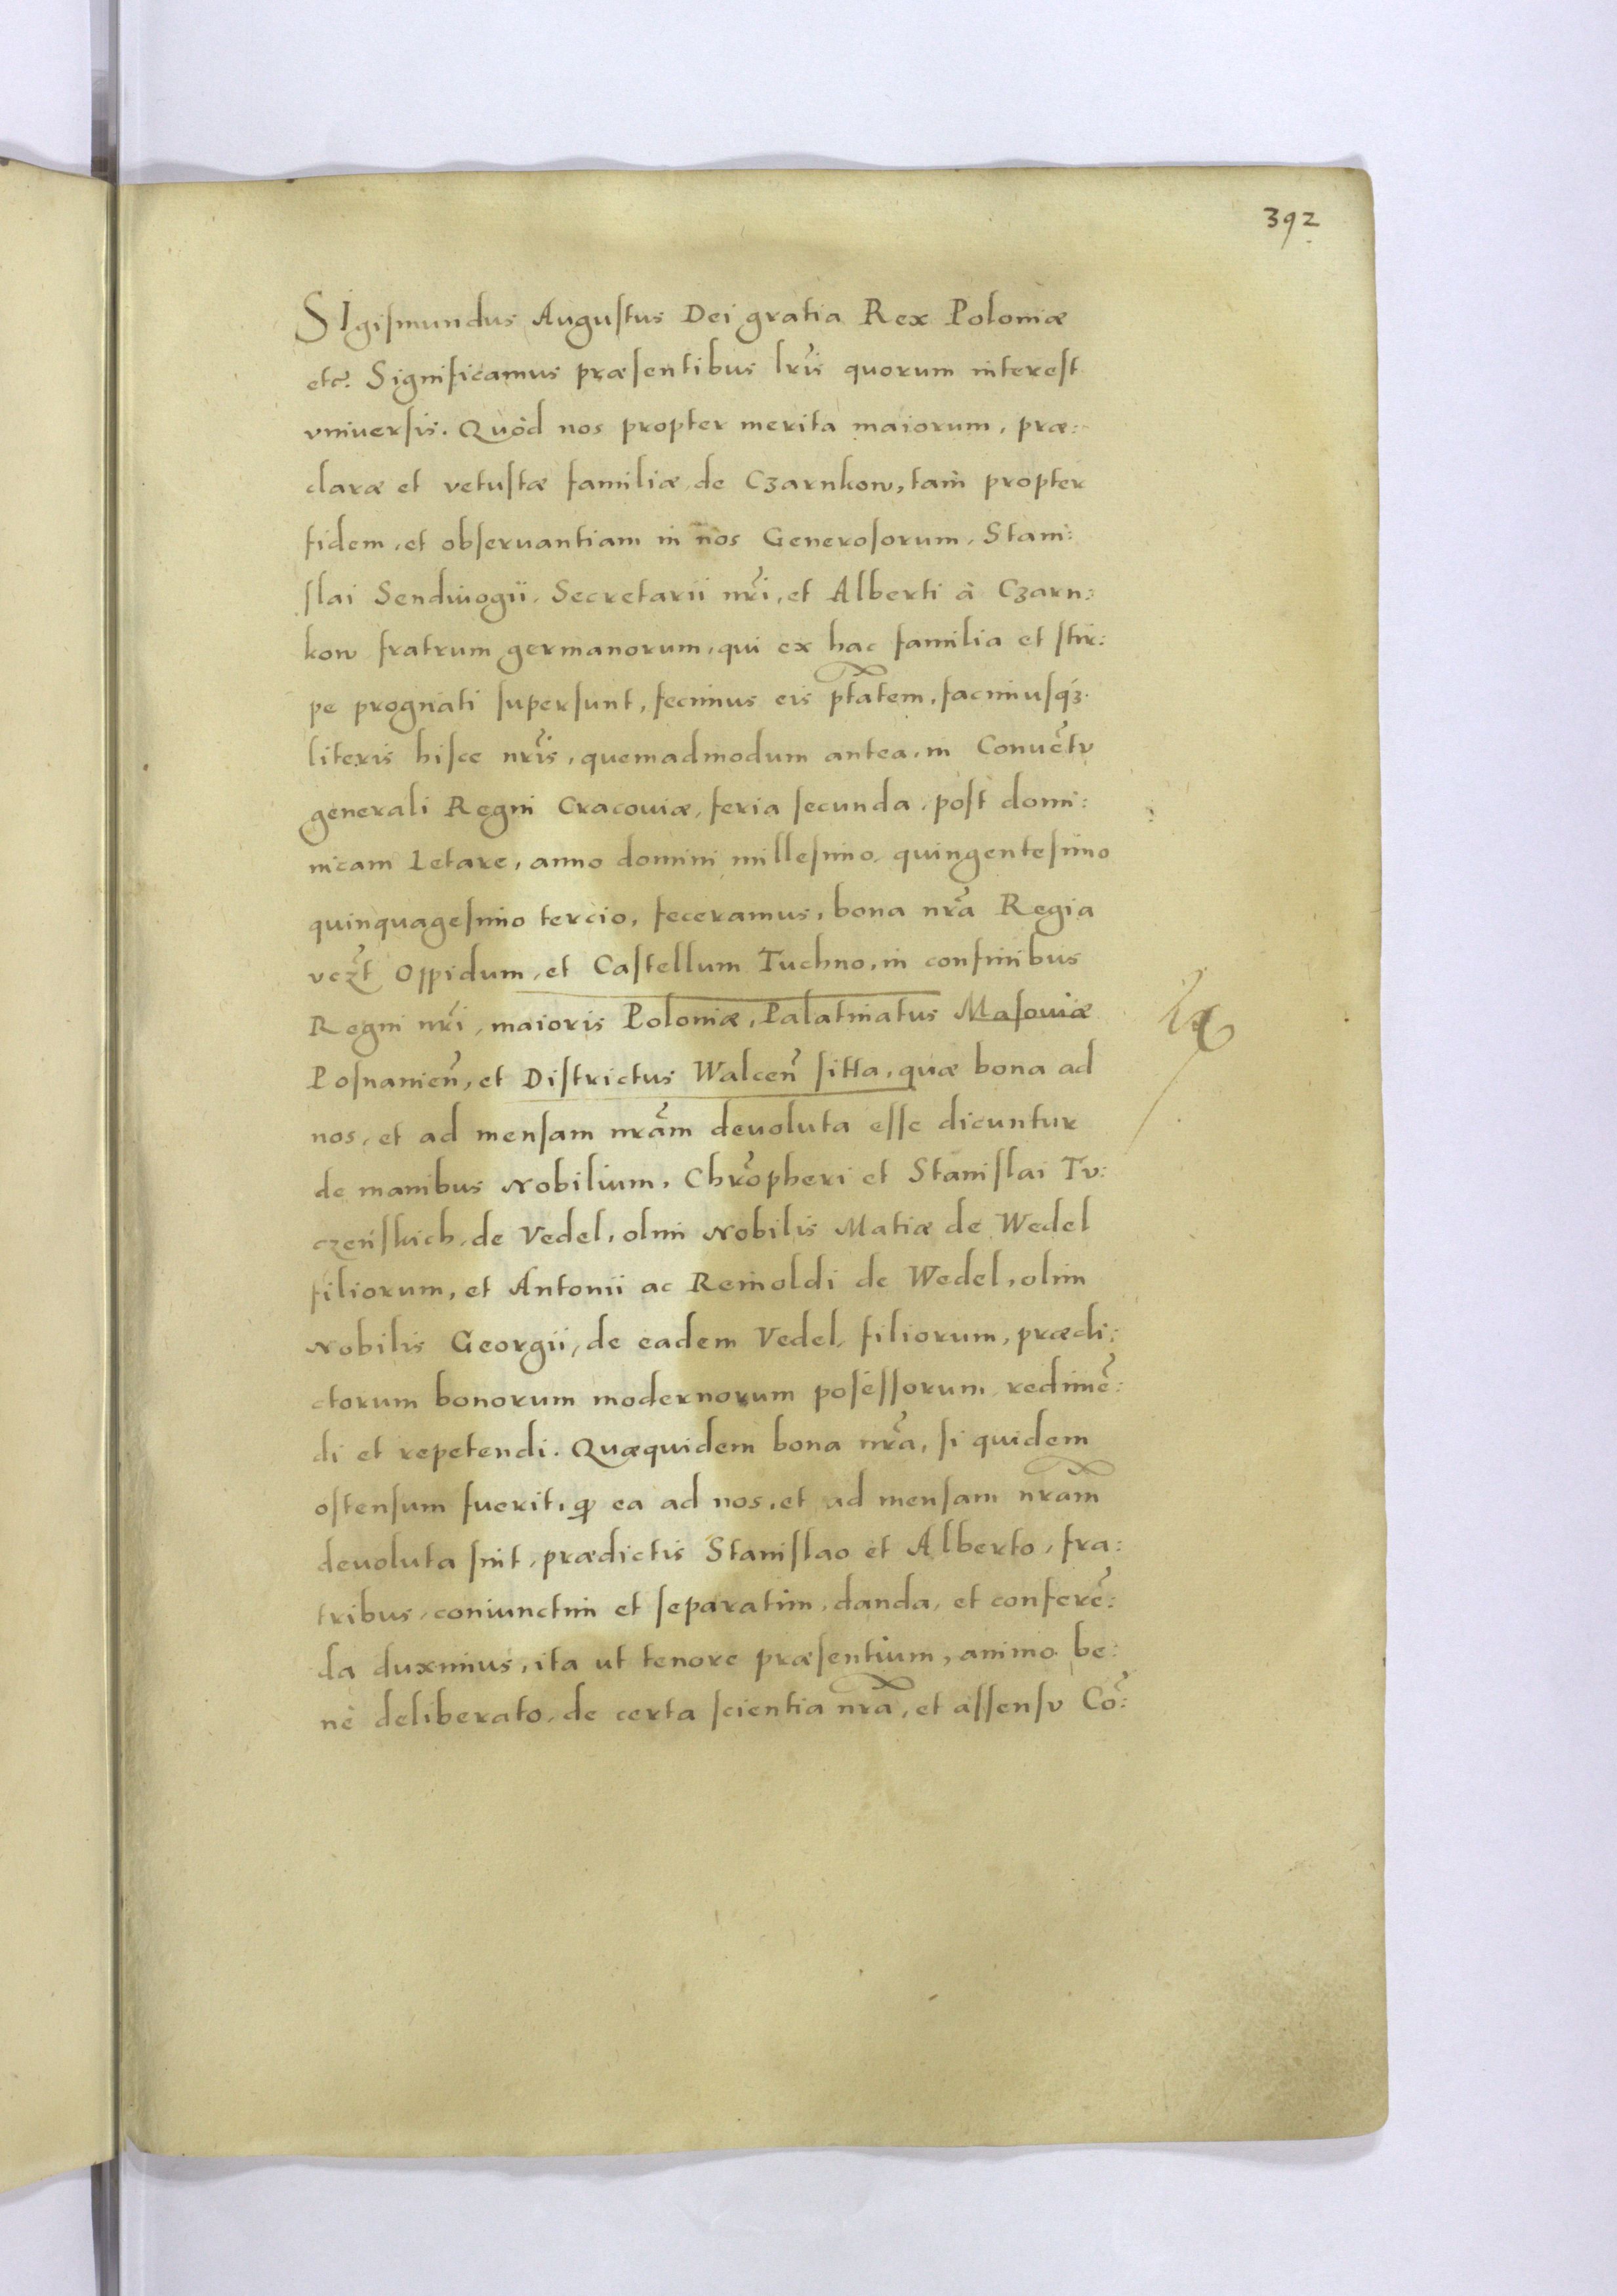 392
SIgiſmundus Auguſtus Dei gratia Rex Poloniæ
etc. Significamus præſentibus lr̃is quorum intereſt
vniuerſis. Quòd nos propter merita maiorum, præ:
claræ et vetuſtæ familiæ de Czarnkow, tam propter
fidem, et obſeruantiam in nos Generoſorum, Stani:
ſlai Sendiuogii, Secretarii nr̃i, et Alberti à Czarn:
kow fratrum germanorum, qui ex hac familia et ſtir:
pe prognati ſuperſunt, fecimus eis ptãtem, facimuſqꝫ.
literis hiſce nr̃is, quemadmodum antea, in Conuẽtu
generali Regni Cracouiæ, feria ſecunda, poſt domi:
nicam Letare, anno domini milleſimo, quingenteſimo
quinquageſimo tercio, feceramus, bona nr̃a Regia
vczt̃ Oppidum, et Caſtellum Tuchno, in confinibus
Regni nr̃i, maioris Poloniæ, Palatinatus Maſouiæ
Poſnanieñ, et Diſtrictus Walceñ ſitta, quæ bona ad
nos, et ad menſam nr̃am deuoluta eſſe dicuntur
de manibus Nobilium, Chrõpheri et Staniſlai Tu:
czeńſkich, de Vedel, olim Nobilis Matiæ de Wedel
filiorum, et Antonii ac Reinoldi de Wedel, olim
Nobilis Georgii, de eadem Vedel, filiorum, prædi:
ctorum bonorum modernorum poſeſſorum, redimẽ:
di et repetendi. Quæquidem bona nr̃a, ſi quidem
oſtenſum fuerit, ꝙ ea ad nos, et ad menſam nr̃am
deuoluta ſint, prædictis Staniſlao et Alberto, fra:
tribus, coniunctim et ſeparatim, danda, et conferẽ:
da duximus, ita ut tenore præſentium, animo be:
nè deliberato, de certa ſcientia nr̃a, et aſſenſu Cõ: